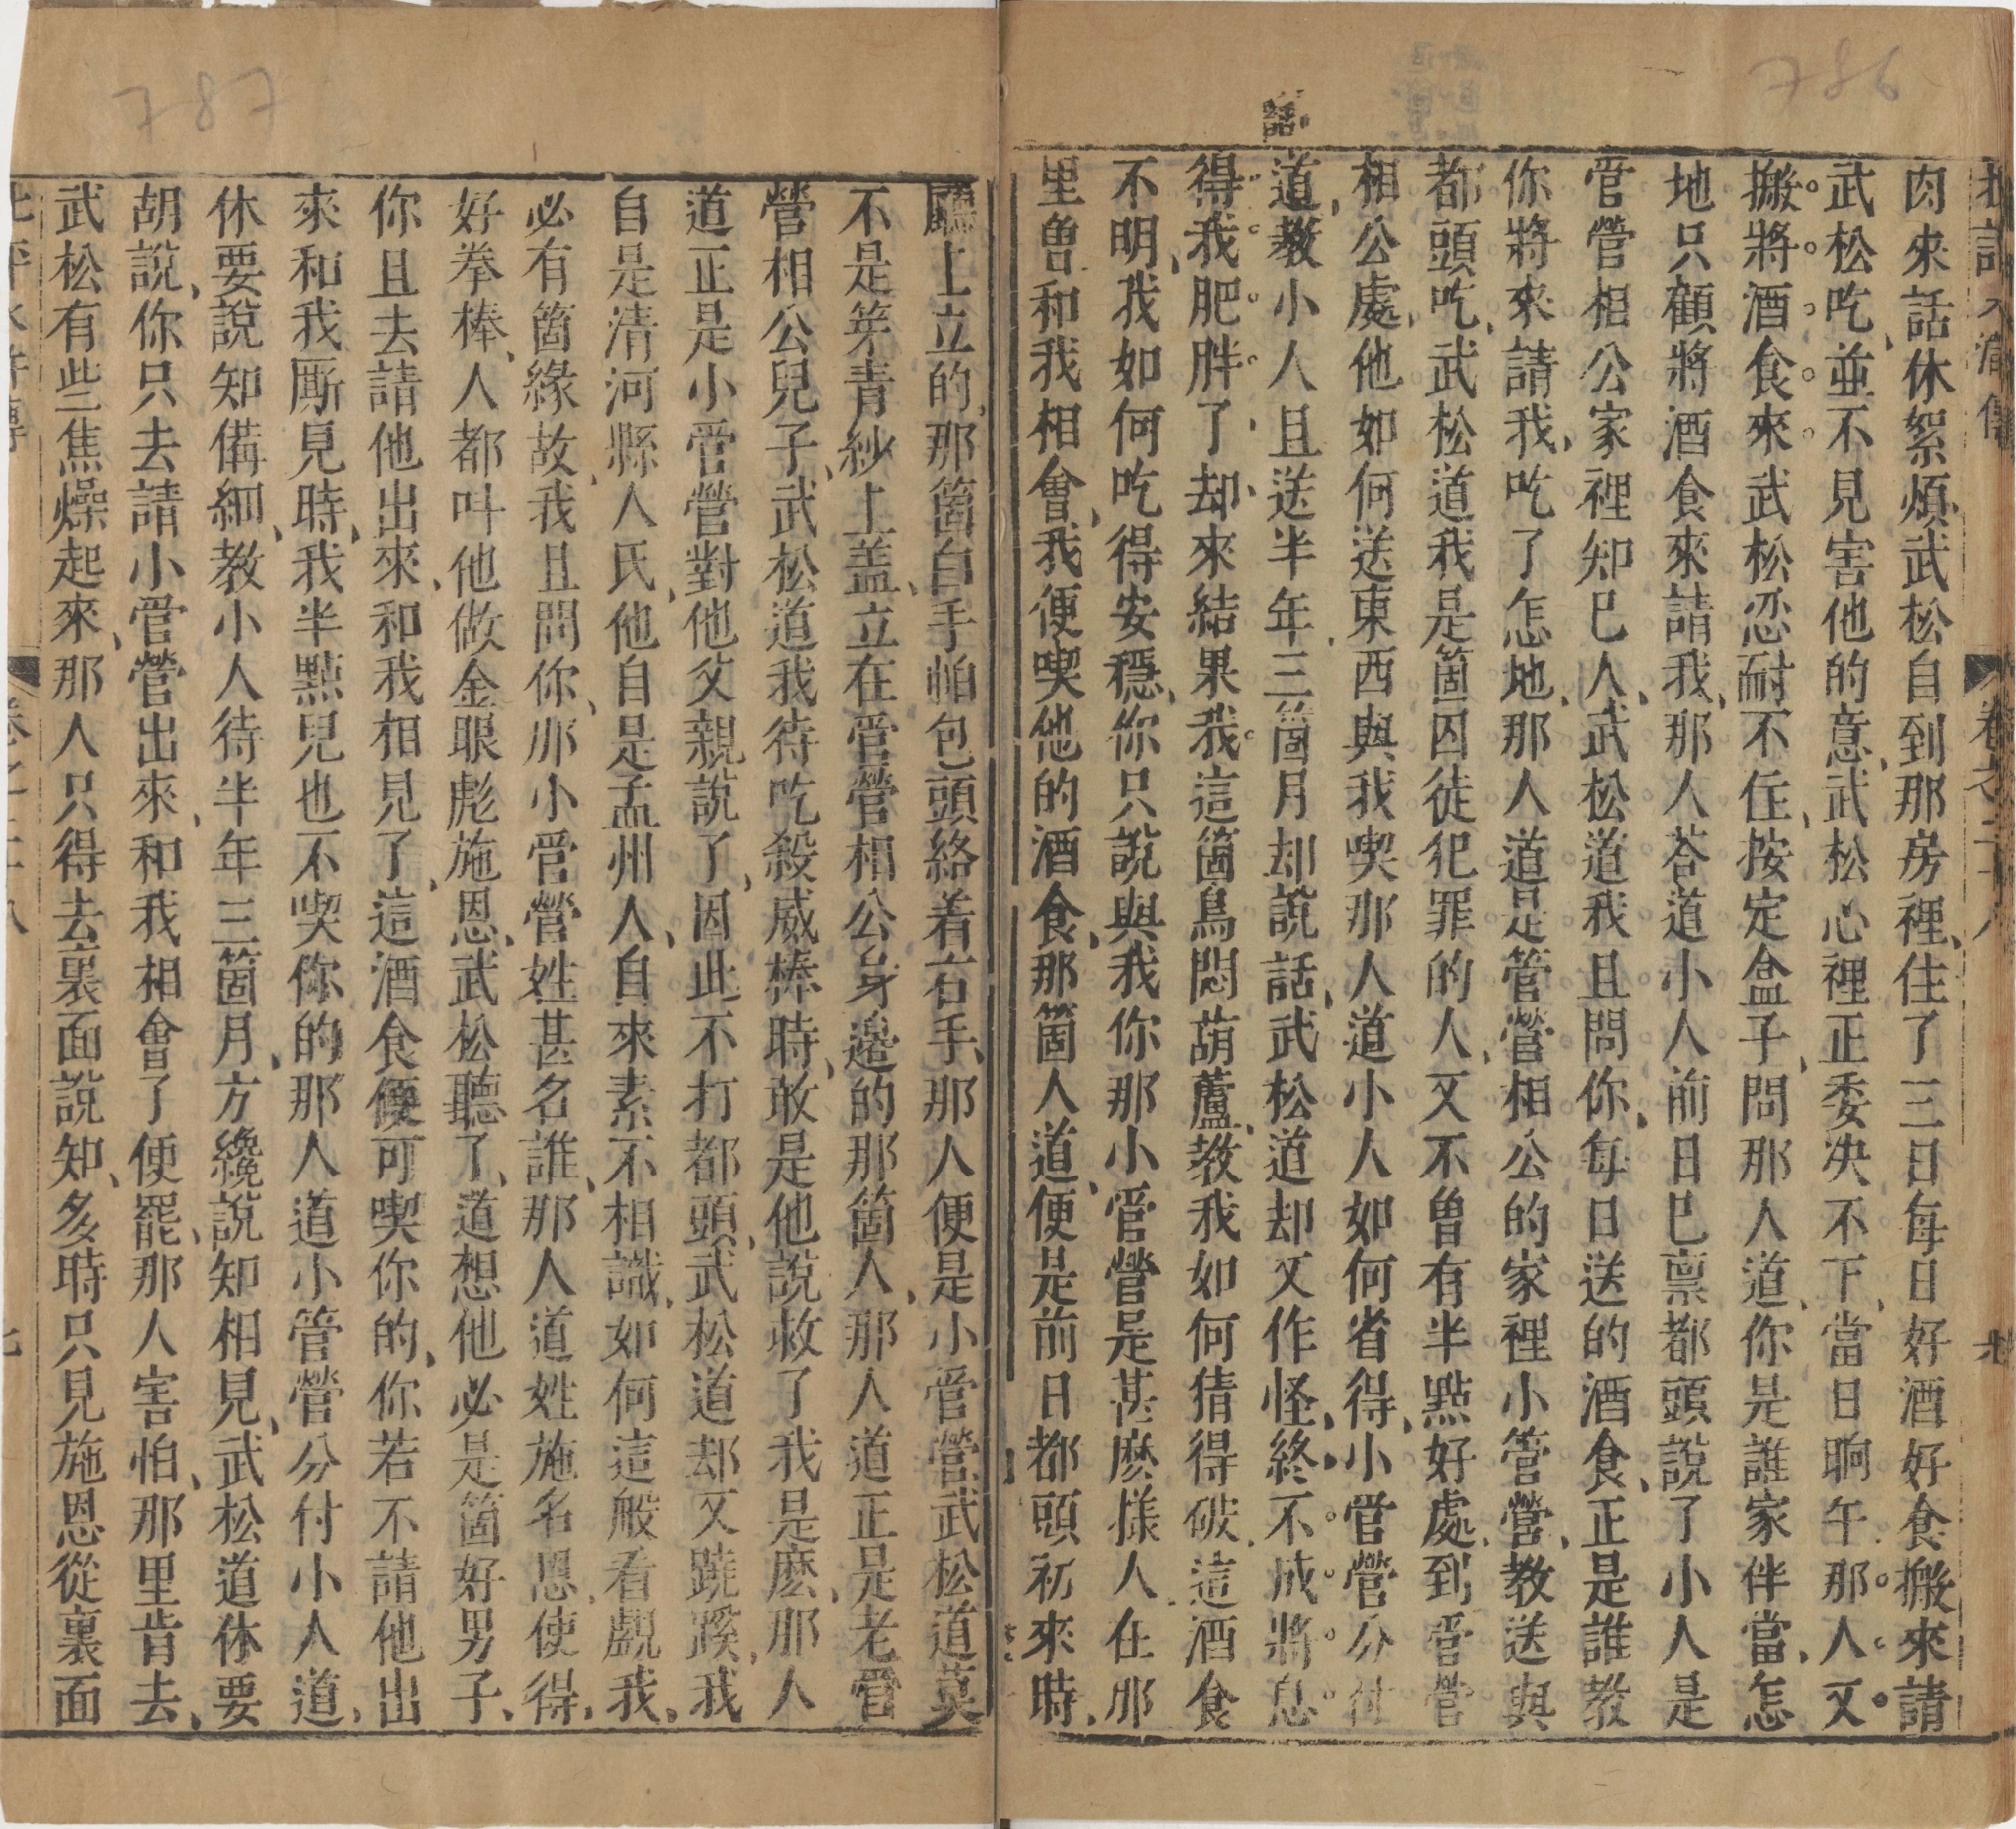 786
卷之二十八
肉來話休絮煩武松自到那房裡住了三日每日好酒好食搬來請
武松吃並不見害他的意武松心裡正委决不下當日晌午那人又
搬將酒食來武松忍耐不住按定盒子問那人道你是誰家伴當怎
地只顧將酒食來請我那人荅道小人前日已禀都頭說了小人是
管營相公家裡知巳人武松道我且問你每日送的酒食正是誰教
你將來請我吃了怎地那人道是管營相公的家裡小管營教送與
都頭吃武松道我是箇囚徒犯罪的人又不曾有半點好處到管營
相公處他如何送東西與我喫那人道小人如何省得小管營分付
道教小人且送半年三箇月却說話武松道却又作怪終不成將息
得我肥胖了却來結果我這箇鳥悶葫蘆教我如何猜得破這酒食
不明我如何吃得安穩你只說與我你那小管營是甚麽樣人在那
里曾和我相會我便喫他的酒食那箇人道便是前日都頭初來時
話
787
廳上立的那箇白手帕包頭絡着右手那人便是小管營武松道莫
不是笄青紗上盖立在管營相公身邊的那箇人那人道正是老管
營相公兒子武松道我待吃殺威棒時敢是他說救了我是麽那人
道正是小管營對他父親說了因此不打都頭武松道却又蹺蹊我
自是清河縣人氏他自是孟州人自來素不相識如何這般看覷我
必有箇緣故我且問你那小管營姓甚名誰那人道姓施名恩使得
好拳棒人都叫他做金眼彪施恩武松聽了道想他必是箇好男子
你且去請他出來和我相見了這酒食便可喫你的你若不請他出
來和我厮見時我半點兒也不喫你的那人道小管營分付小人道
休要說知備細教小人待半年三箇月方纔說知相見武松道休要
胡說你只去請小管營出來和我相會了便罷那人害怕那里肯去
武松有些焦燥起來那人只得去裏面說知多時只見施恩從裏面
卷之二十八